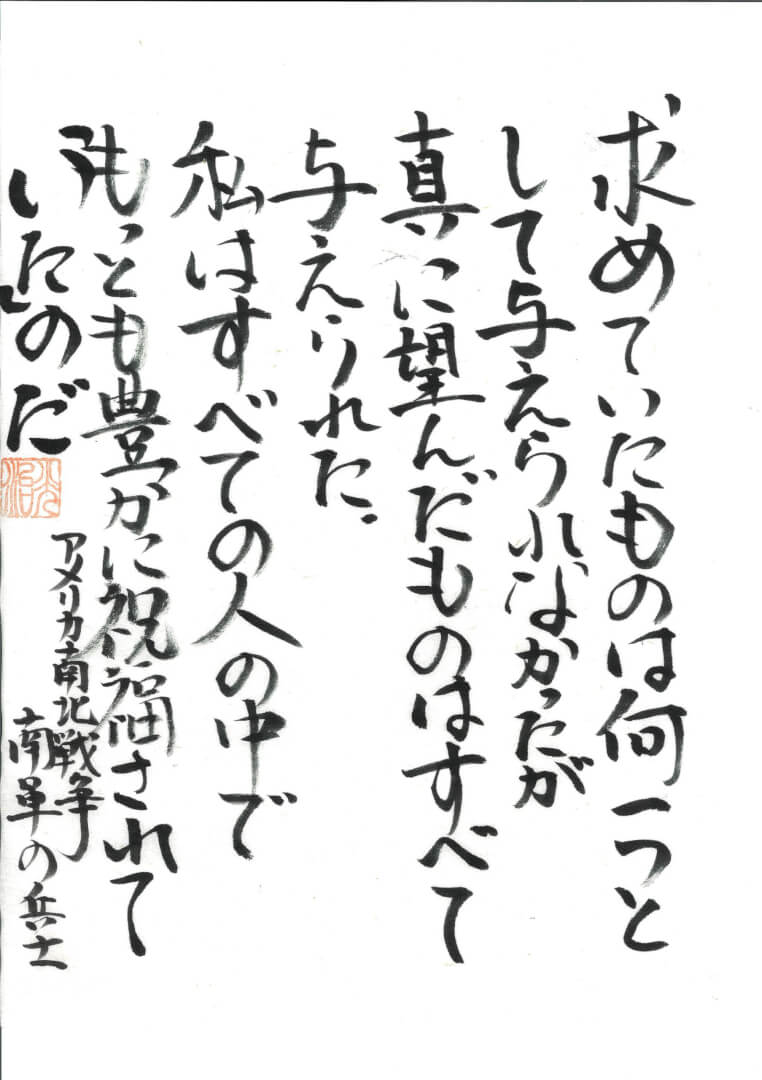 求めていたものは何一つと
して与えられなかったが
真に望んだものはすべて
与えられた。
私はすべての人の中で
「もっとも豊かに祝福されて
いた」のだ
アメリカ南北戦争
南軍の兵士